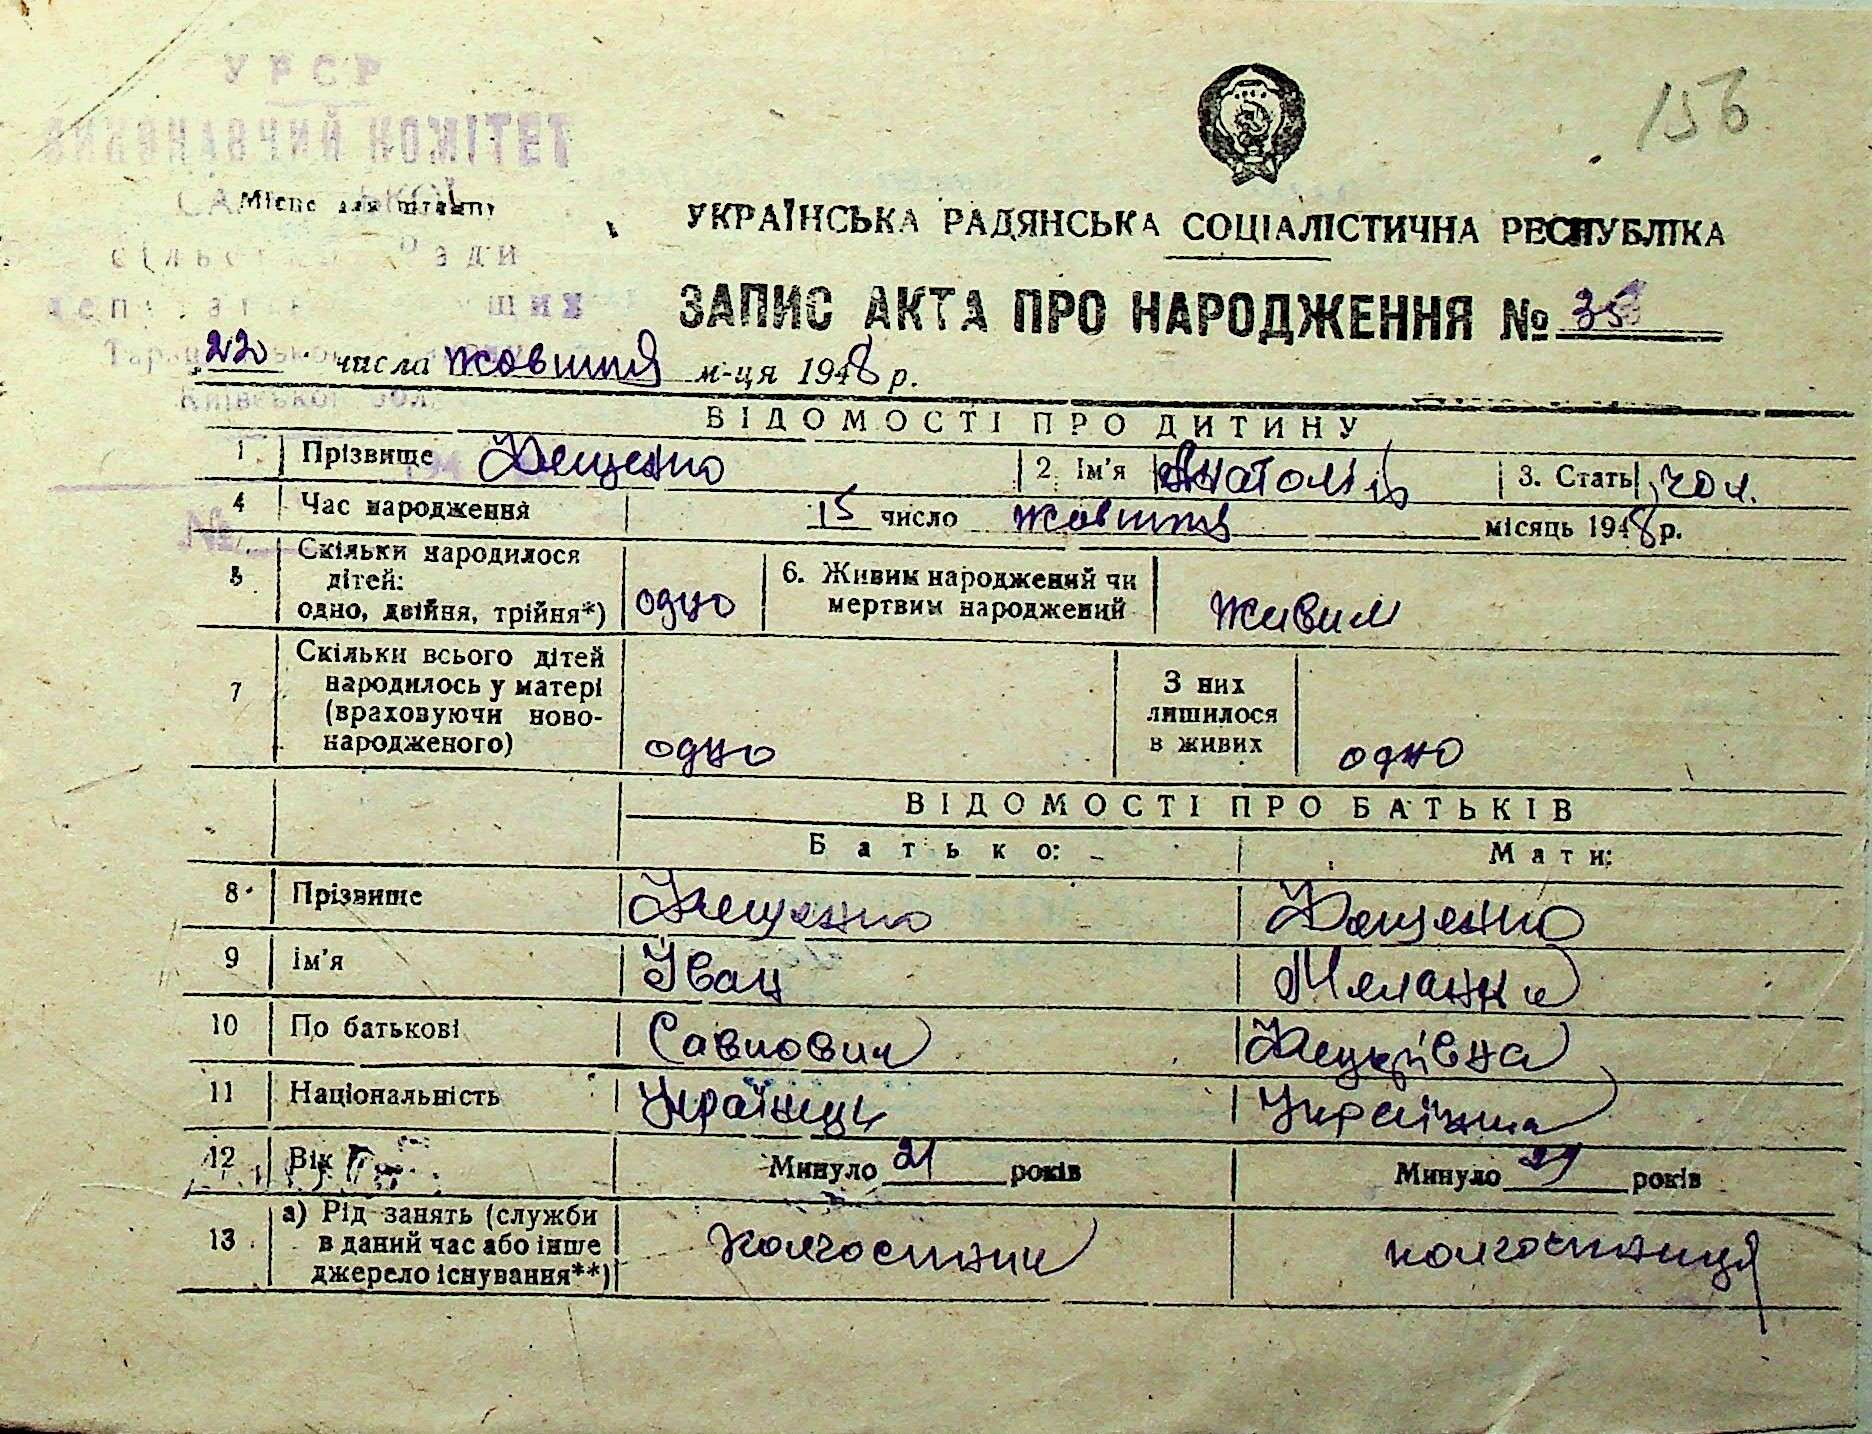 УРСР
156
ВИКОНАВЧИЙ КОМІТЕТ
Місце для штампу
УКРАЇНСЬКА РАДЯНСЬКА СОЦІАЛІСТИЧНА РЕСПУБЛІКА
сільської Ради
ЗАПИС АКТА ПРО НАРОДЖЕННЯ №
22 числа жовтня м-ця 1948 р.
Київської обл.
ВІДОМОСТІ ПРО ДИТИНУ
1 Прізвище Дещенко 2. Ім'я Анатолій 3. Стать чол.
4 Час народження 15 число жовтня місяць 1948 р.
№
5 Скільки народилося
дітей:
одно, двійня, трійня*) одно 6. Живим народжений чи
мертвим народжений живим
7 Скільки всього дітей
народилось у матері
(враховуючи ново-
народженого) одно З них
лишилося
в живих одно
ВІДОМОСТІ ПРО БАТЬКІВ
Батько: Мати:
8 Прізвище Дещенко Дещенко
9 Ім'я Іван Меланія
10 По батькові Савович
11 Національність Українець Українка
12 Вік Минуло 21 років Минуло 21 років
13 а) Рід занять (служби
в даний час або інше
джерело існування**) колгоспник колгоспниця